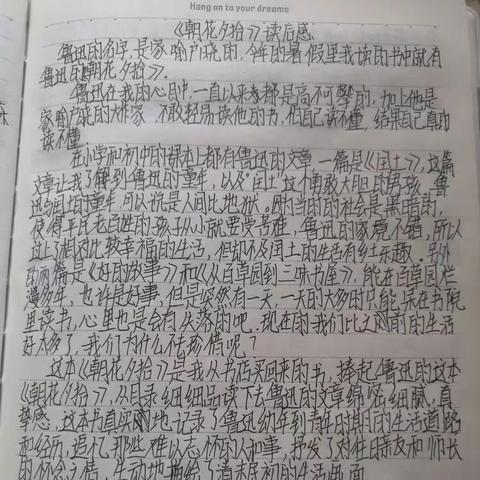 Hang on to your dreams
《朝花夕拾》读后感
鲁迅的名字,是家喻户晓的,今年的暑假里我读的书中就有
鲁迅的《朝花夕拾》。
鲁迅在我的心目中,一直以来都是高不可攀的,加上他是
家喻户晓的作家,不敢轻易读他的书,怕自己读不懂,结果自己真的
读不懂。
在小学和初中的课本上都有鲁迅的文章,一篇是《闰土》,这篇
文章让我了解到鲁迅的童年,以及"闰土"这个勇敢大胆的男孩。鲁
迅与闰土的童年可以说是人间比地狱。因为当时的社会是黑暗的,
使得平民老百姓的孩子从小就要受苦难,鲁迅的家境不错,所以
过上了相对比较幸福的生活,但却不及闰土的生活有乡土乐趣。另外
的两篇是《好的故事》和《从百草园到三味书屋》,能在百草园烂
漫多年,也许是好事,但是突然有一天,一天的大多时只能呆在书院
里读书,心里也是会有失落的吧。现在的我们比之前的生活
好太多了,我们为什么不珍惜呢?
这本《朝花夕拾》是我从书店买回来的书,捧起鲁迅的这本
《朝花夕拾》,从目录细细品读下去,鲁迅的文章绵密细腻,真
挚感,这本书真实地记录了鲁迅幼年到青年时期的生活道路
和经历,追忆那些难以忘怀的人和事,抒发了对往日亲友和师长
的怀念之情,生动地描绘了清末民初的生活画面